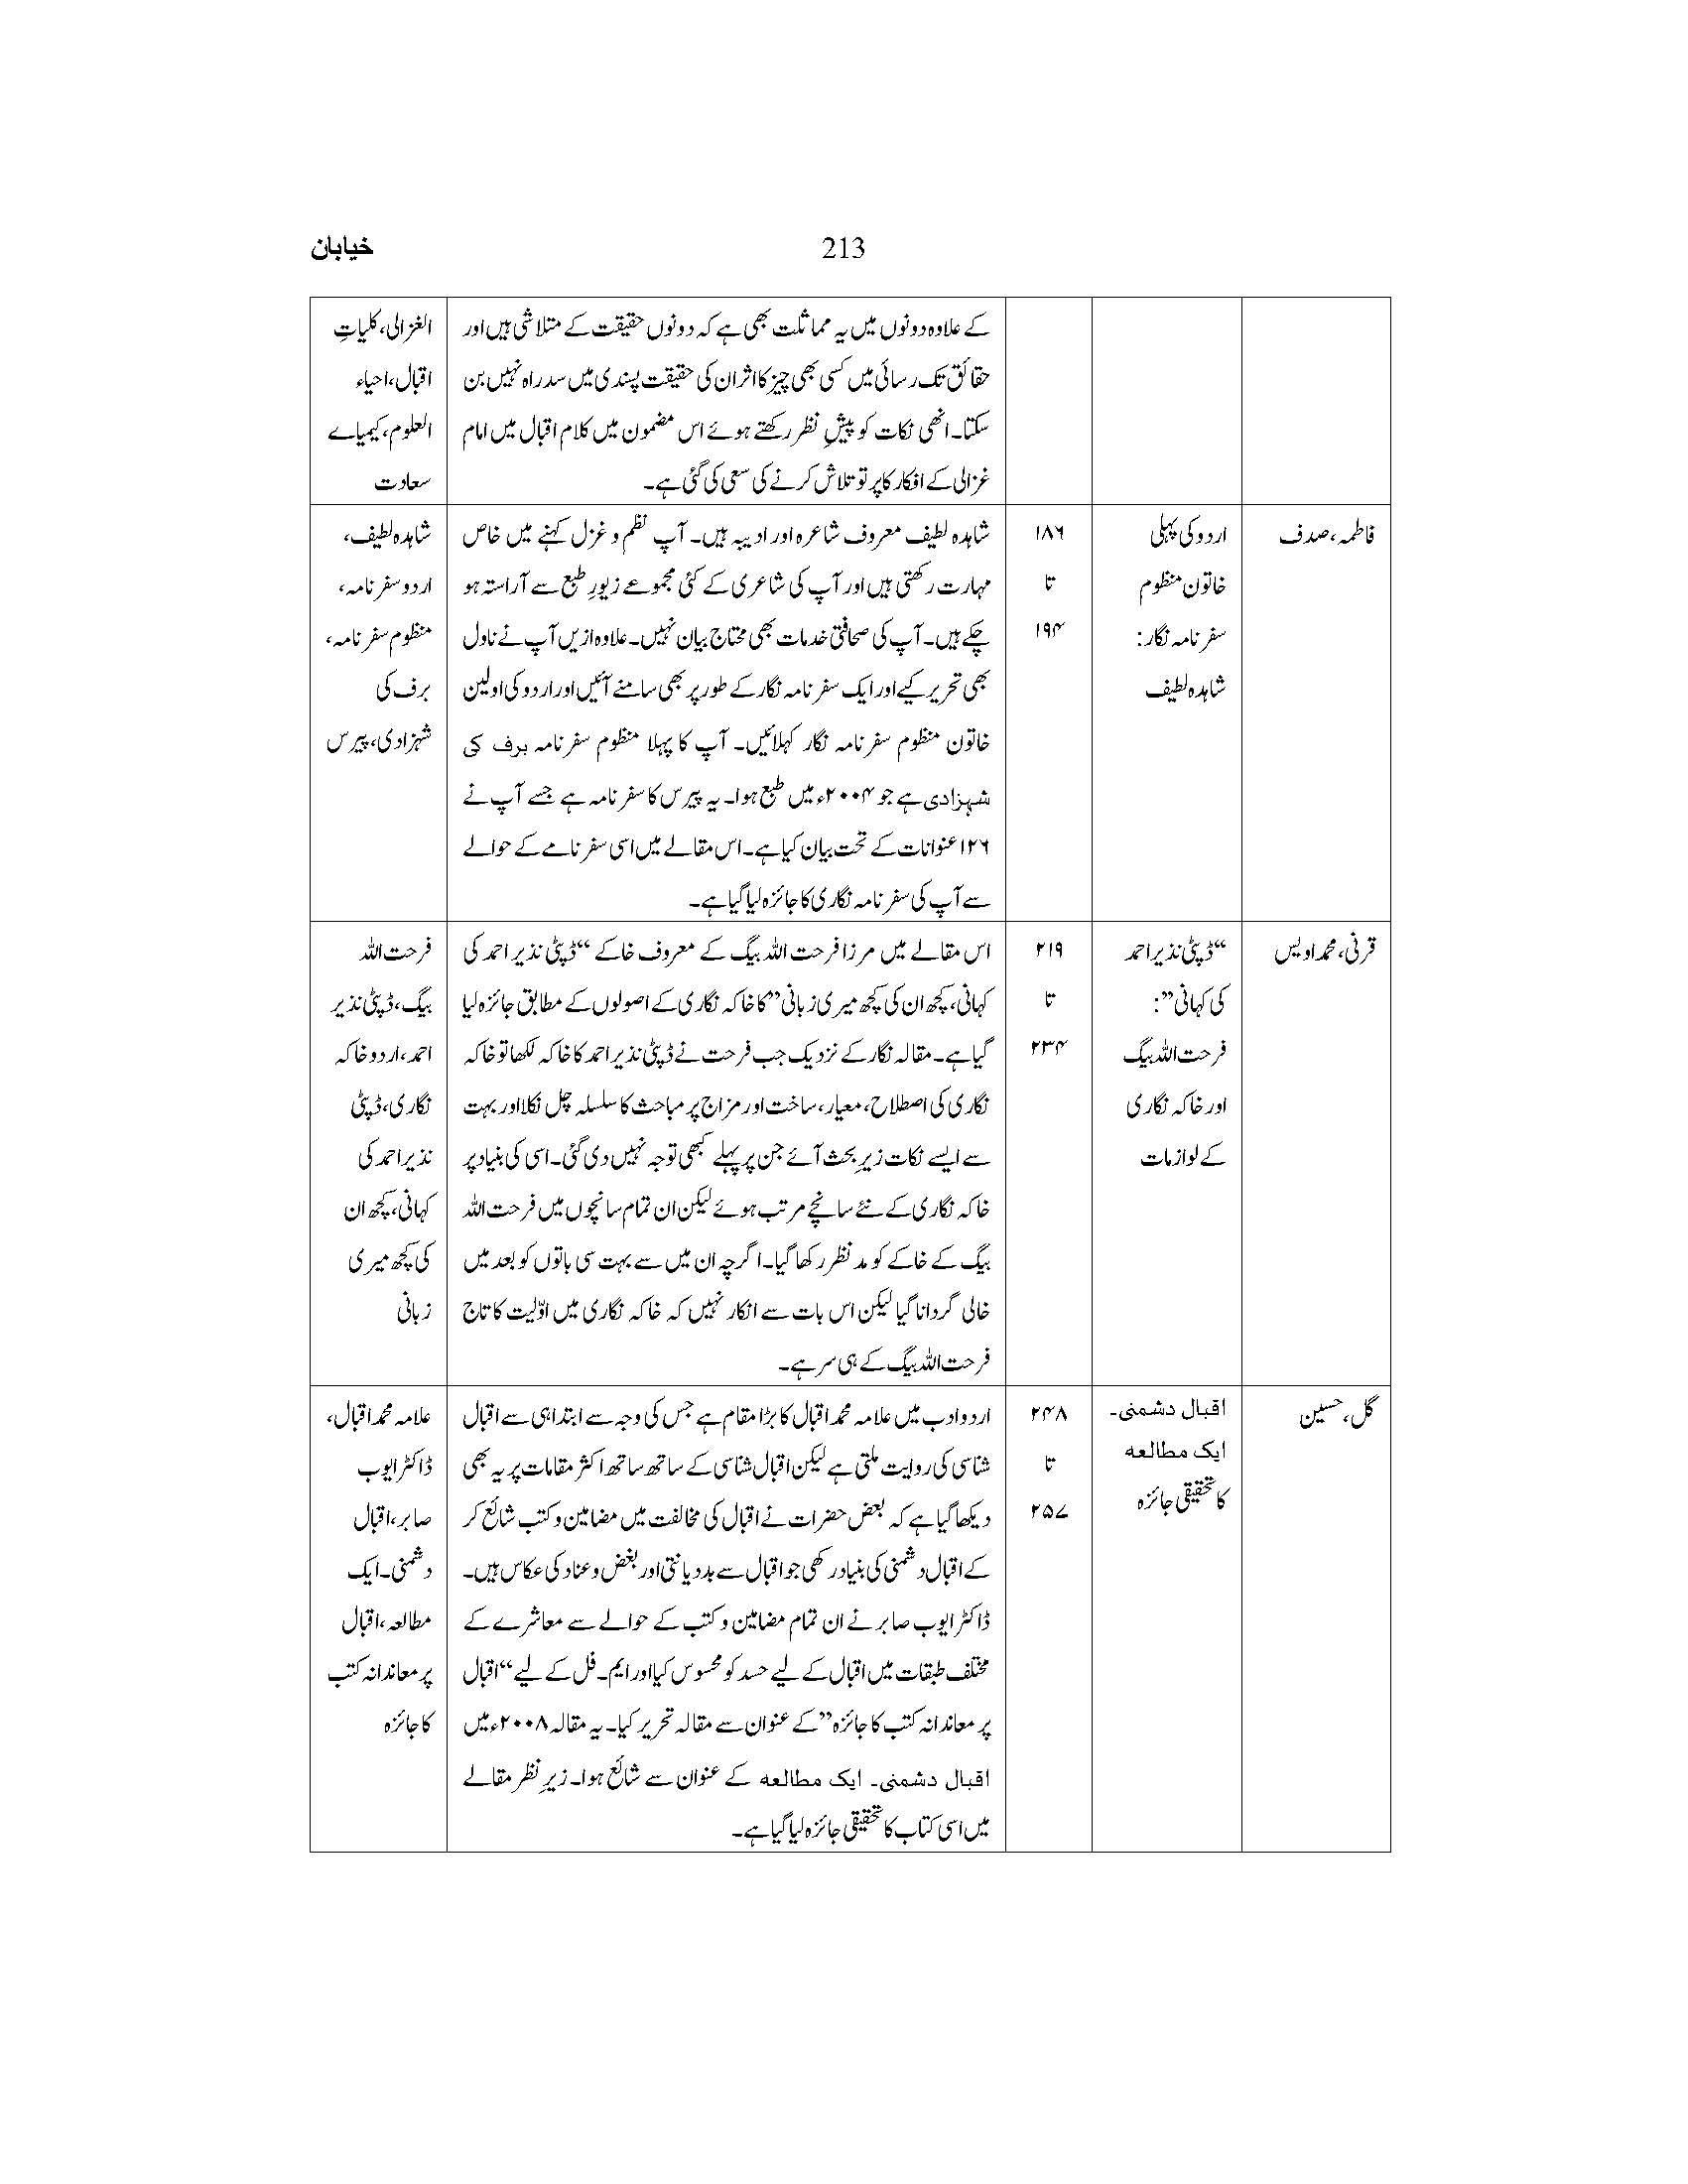 213
خیابان
کے علاوہ دونوں میں یہ مماثلت بھی ہے کہ دونوں حقیقت کے متلاشی ہیں اور
حقائق تک رسائی میں کسی بھی چیز کا اثر ان کی حقیقت پسندی میں سدراہ نہیں بن
سکتا۔ انھی نکات کو پیشِ نظر رکھتے ہوئے اس مضمون میں کلام اقبال میں امام
غزالی کے افکار کا پرتو تلاش کرنے کی سعی کی گئی ہے۔
الغزالی، کلیاتِ
اقبال، احیاء
العلوم، کیمیاے
سعادت
فاطمہ، صدف
اردو کی پہلی
خاتون منظوم
سفر نامہ نگار:
شاہدہ لطیف
۱۸۶
تا
۱۹۴
شاہدہ لطیف معروف شاعرہ اور ادیبہ ہیں۔ آپ نظم و غزل کہنے میں خاص
مہارت رکھتی ہیں اور آپ کی شاعری کے کئی مجموعے زیورِ طبع سے آراستہ ہو
چکے ہیں۔ آپ کی صحافتی خدمات بھی محتاج بیان نہیں۔ علاوہ ازیں آپ نے ناول
بھی تحریر کیے اور ایک سفر نامہ نگار کے طور پر بھی سامنے آئیں اور اردو کی اولین
خاتون منظوم سفر نامہ نگار کہلائیں۔ آپ کا پہلا منظوم سفر نامہ برف کی
شہزادی ہے جو ۲۰۰۴ء میں طبع ہوا۔ یہ پیرس کا سفر نامہ ہے جسے آپ نے
۱۲۶ عنوانات کے تحت بیان کیا ہے۔ اس مقالے میں اسی سفر نامے کے حوالے
سے آپ کی سفر نامہ نگاری کا جائزہ لیا گیا ہے۔
شاہدہ لطیف،
اردو سفر نامہ،
منظوم سفر نامہ،
برف کی
شہزادی، پیرس
قرنی، محمد اویس
“ڈپٹی نذیر احمد
کی کہانی”:
فرحت اللہ بیگ
اور خاکہ نگاری
کے لوازمات
۲۱۹
تا
۲۳۴
اس مقالے میں مرزا فرحت اللہ بیگ کے معروف خاکے “ڈپٹی نذیر احمد کی
کہانی، کچھ ان کی کچھ میری زبانی” کا خاکہ نگاری کے اصولوں کے مطابق جائزہ لیا
گیا ہے۔ مقالہ نگار کے نزدیک جب فرحت نے ڈپٹی نذیر احمد کا خاکہ لکھا تو خاکہ
نگاری کی اصطلاح، معیار، ساخت اور مزاج پر مباحث کا سلسلہ چل نکلا اور بہت
سے ایسے نکات زیرِ بحث آئے جن پر پہلے کبھی توجہ نہیں دی گئی۔ اسی کی بنیاد پر
خاکہ نگاری کے نئے سانچے مرتب ہوئے لیکن ان تمام سانچوں میں فرحت اللہ
بیگ کے خاکے کو مد نظر رکھا گیا۔ اگرچہ ان میں سے بہت سی باتوں کو بعد میں
خالی گردانا گیا لیکن اس بات سے انکار نہیں کہ خاکہ نگاری میں اوّلیت کا تاج
فرحت اللہ بیگ کے ہی سر ہے۔
فرحت اللہ
بیگ، ڈپٹی نذیر
احمد، اردو خاکہ
نگاری، ڈپٹی
نذیر احمد کی
کہانی، کچھ ان
کی کچھ میری
زبانی
گل، حسین
اقبال دشمنی۔
ایک مطالعہ
کا تحقیقی جائزہ
۲۴۸
تا
۲۵۷
اردو ادب میں علامہ محمد اقبال کا بڑا مقام ہے جس کی وجہ سے ابتدا ہی سے اقبال
شناسی کی روایت ملتی ہے لیکن اقبال شناسی کے ساتھ ساتھ اکثر مقامات پر یہ بھی
دیکھا گیا ہے کہ بعض حضرات نے اقبال کی مخالفت میں مضامین و کتب شائع کر
کے اقبال دشمنی کی بنیاد رکھی جو اقبال سے بددیانتی اور بغض و عناد کی عکاس ہیں۔
ڈاکٹر ایوب صابر نے ان تمام مضامین و کتب کے حوالے سے معاشرے کے
مختلف طبقات میں اقبال کے لیے حسد کو محسوس کیا اور ایم۔ فل کے لیے “اقبال
پر معاندانہ کتب کا جائزہ” کے عنوان سے مقالہ تحریر کیا۔ یہ مقالہ ۲۰۰۸ء میں
اقبال دشمنی۔ ایک مطالعہ کے عنوان سے شائع ہوا۔ زیرِ نظر مقالے
میں اسی کتاب کا تحقیقی جائزہ لیا گیا ہے۔
علامہ محمد اقبال،
ڈاکٹر ایوب
صابر، اقبال
دشمنی۔ ایک
مطالعہ، اقبال
پر معاندانہ کتب
کا جائزہ